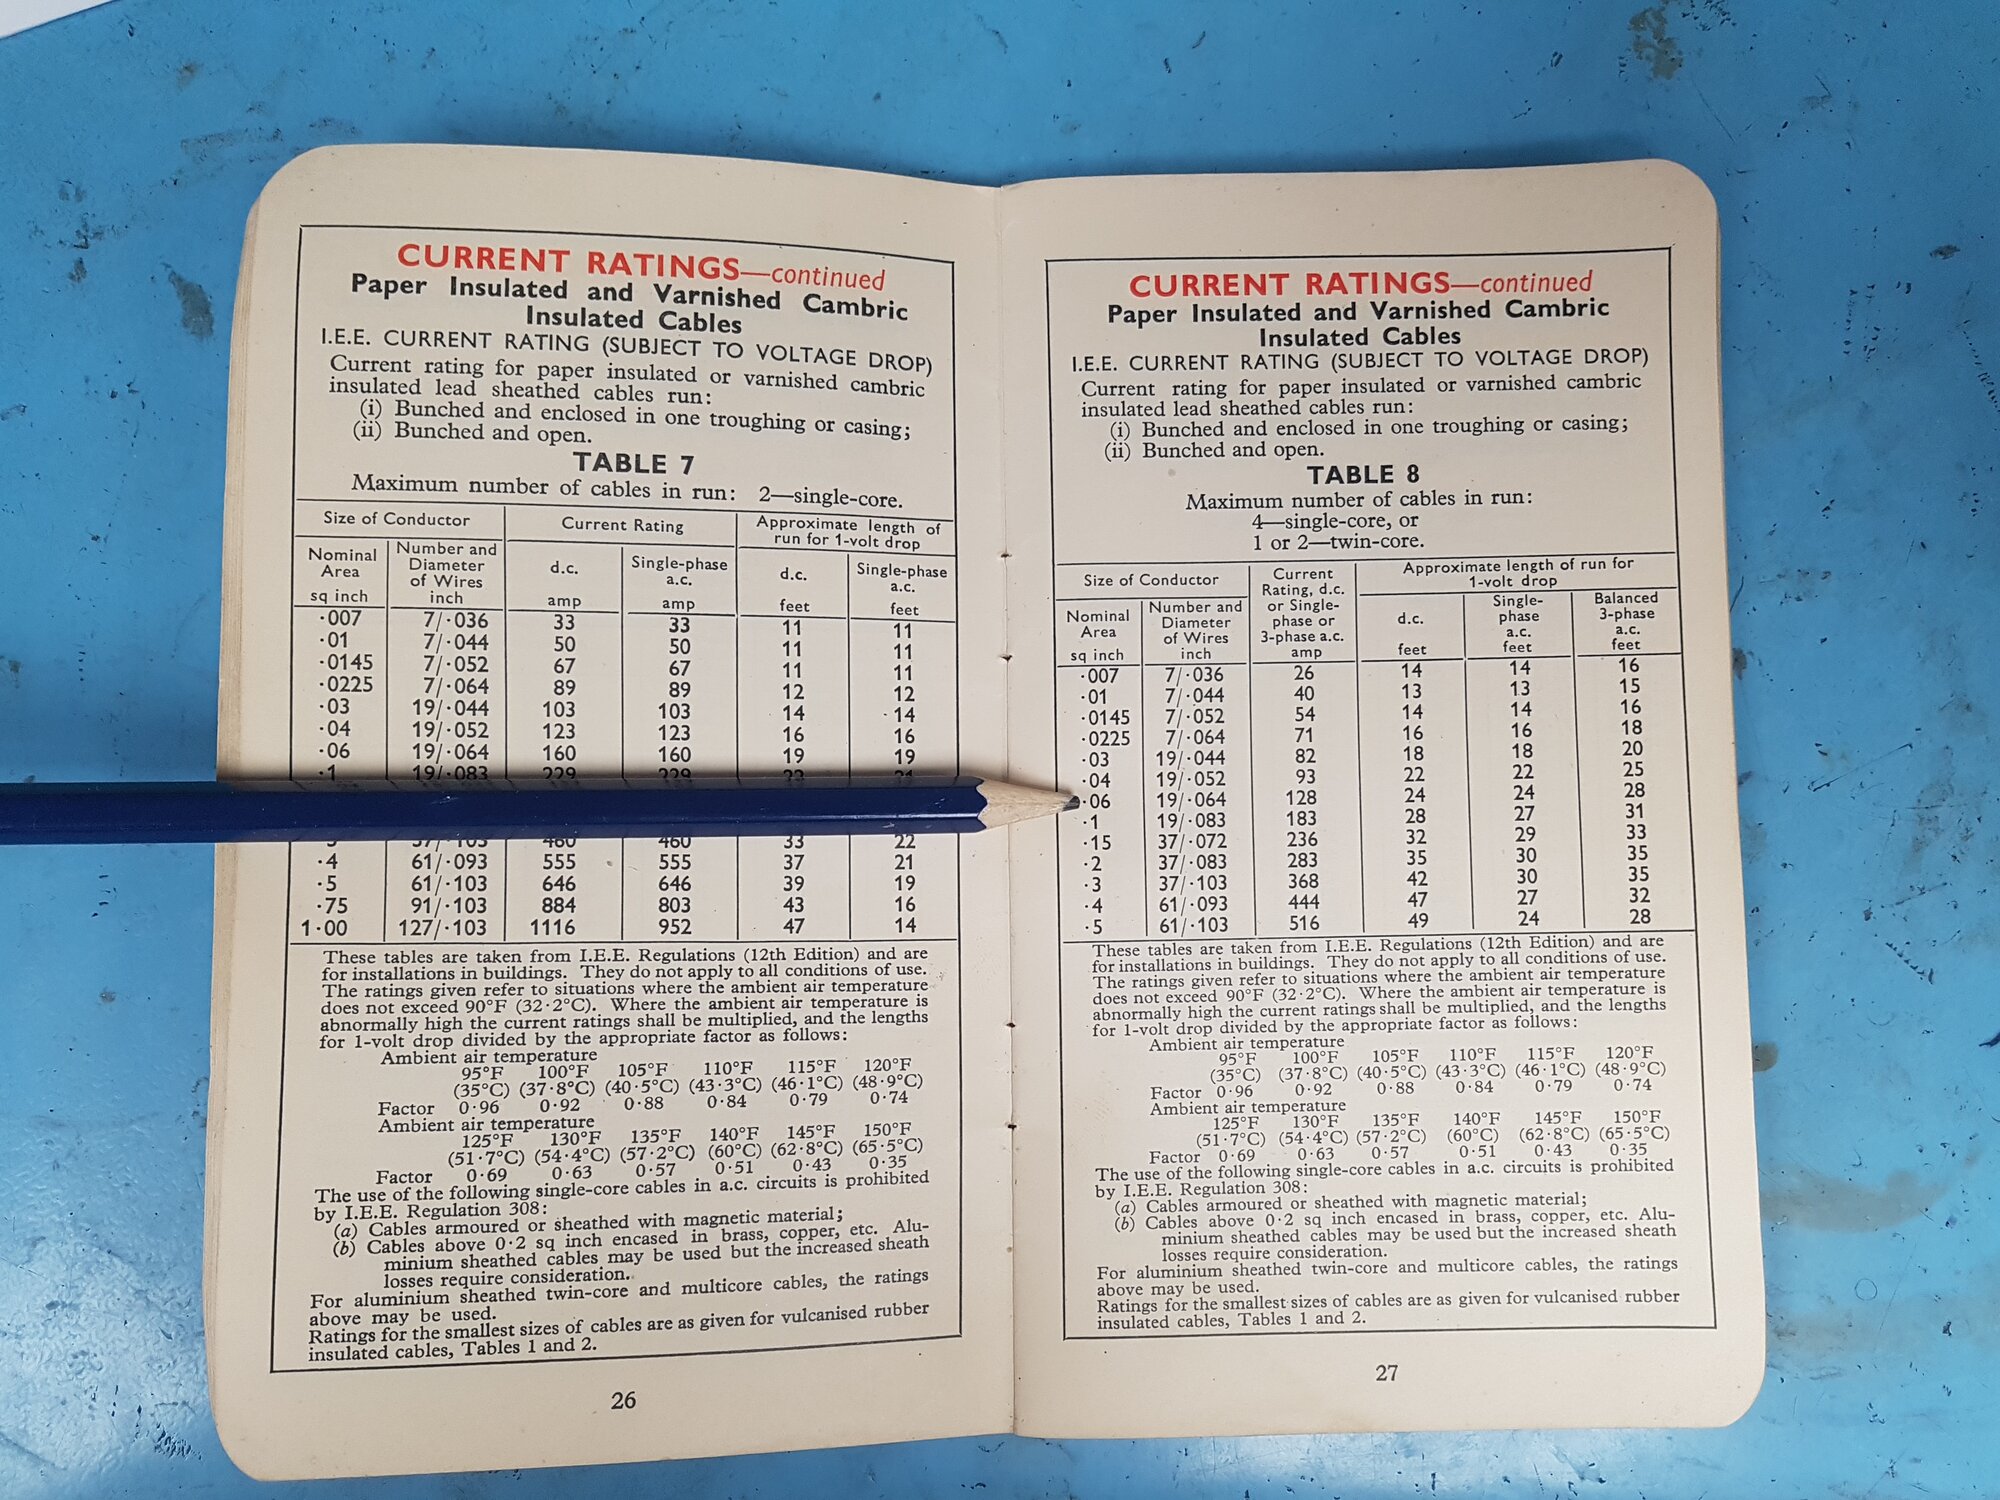 CURRENT RATINGS—continued
Paper Insulated and Varnished Cambric
Insulated Cables
I.E.E. CURRENT RATING (SUBJECT TO VOLTAGE DROP)
Current rating for paper insulated or varnished cambric
insulated lead sheathed cables run:
(i) Bunched and enclosed in one troughing or casing;
(ii) Bunched and open.
TABLE 7
Maximum number of cables in run: 2—single-core.
Size of Conductor Current Rating Approximate length of
run for 1-volt drop
Nominal Number and d.c. Single-phase d.c. Single-phase
Area Diameter a.c. a.c.
of Wires
sq inch inch amp amp feet feet
·007 7/·036 33 33 11 11
·01 7/·044 50 50 11 11
·0145 7/·052 67 67 11 11
·0225 7/·064 89 89 12 12
·03 19/·044 103 103 14 14
·04 19/·052 123 123 16 16
·06 19/·064 160 160 19 19
·1 19/·083 229 229
37/·103 460 460 33 22
·4 61/·093 555 555 37 21
·5 61/·103 646 646 39 19
·75 91/·103 884 803 43 16
1·00 127/·103 1116 952 47 14
These tables are taken from I.E.E. Regulations (12th Edition) and are
for installations in buildings. They do not apply to all conditions of use.
The ratings given refer to situations where the ambient air temperature
does not exceed 90°F (32·2°C). Where the ambient air temperature is
abnormally high the current ratings shall be multiplied, and the lengths
for 1-volt drop divided by the appropriate factor as follows:
Ambient air temperature
95°F 100°F 105°F 110°F 115°F 120°F
(35°C) (37·8°C) (40·5°C) (43·3°C) (46·1°C) (48·9°C)
Factor 0·96 0·92 0·88 0·84 0·79 0·74
Ambient air temperature
125°F 130°F 135°F 140°F 145°F 150°F
(51·7°C) (54·4°C) (57·2°C) (60°C) (62·8°C) (65·5°C)
Factor 0·69 0·63 0·57 0·51 0·43 0·35
The use of the following single-core cables in a.c. circuits is prohibited
by I.E.E. Regulation 308:
(a) Cables armoured or sheathed with magnetic material;
(b) Cables above 0·2 sq inch encased in brass, copper, etc. Alu-
minium sheathed cables may be used but the increased sheath
losses require consideration.
For aluminium sheathed twin-core and multicore cables, the ratings
above may be used.
Ratings for the smallest sizes of cables are as given for vulcanised rubber
insulated cables, Tables 1 and 2.
26
CURRENT RATINGS—continued
Paper Insulated and Varnished Cambric
Insulated Cables
I.E.E. CURRENT RATING (SUBJECT TO VOLTAGE DROP)
Current rating for paper insulated or varnished cambric
insulated lead sheathed cables run:
(i) Bunched and enclosed in one troughing or casing;
(ii) Bunched and open.
TABLE 8
Maximum number of cables in run:
4—single-core, or
1 or 2—twin-core.
Size of Conductor Current Approximate length of run for
Rating, d.c. 1-volt drop
Nominal Number and or Single- d.c. Single- Balanced
Area Diameter phase or phase 3-phase
of Wires 3-phase a.c. a.c. a.c.
sq inch inch amp feet feet feet
·007 7/·036 26 14 14 16
·01 7/·044 40 13 13 15
·0145 7/·052 54 14 14 16
·0225 7/·064 71 16 16 18
·03 19/·044 82 18 18 20
·04 19/·052 93 22 22 25
·06 19/·064 128 24 24 28
·1 19/·083 183 28 27 31
·15 37/·072 236 32 29 33
·2 37/·083 283 35 30 35
·3 37/·103 368 42 30 35
·4 61/·093 444 47 27 32
·5 61/·103 516 49 24 28
These tables are taken from I.E.E. Regulations (12th Edition) and are
for installations in buildings. They do not apply to all conditions of use.
The ratings given refer to situations where the ambient air temperature
does not exceed 90°F (32·2°C). Where the ambient air temperature is
abnormally high the current ratings shall be multiplied, and the lengths
for 1-volt drop divided by the appropriate factor as follows:
Ambient air temperature
95°F 100°F 105°F 110°F 115°F 120°F
(35°C) (37·8°C) (40·5°C) (43·3°C) (46·1°C) (48·9°C)
Factor 0·96 0·92 0·88 0·84 0·79 0·74
Ambient air temperature
125°F 130°F 135°F 140°F 145°F 150°F
(51·7°C) (54·4°C) (57·2°C) (60°C) (62·8°C) (65·5°C)
Factor 0·69 0·63 0·57 0·51 0·43 0·35
The use of the following single-core cables in a.c. circuits is prohibited
by I.E.E. Regulation 308:
(a) Cables armoured or sheathed with magnetic material;
(b) Cables above 0·2 sq inch encased in brass, copper, etc. Alu-
minium sheathed cables may be used but the increased sheath
losses require consideration.
For aluminium sheathed twin-core and multicore cables, the ratings
above may be used.
Ratings for the smallest sizes of cables are as given for vulcanised rubber
insulated cables, Tables 1 and 2.
27